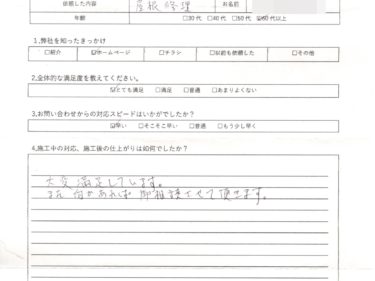 依頼した内容 屋根修理 お名前
年齢 □30代 □40代 □50代 ☑60代以上
1,弊社を知ったきっかけ
□紹介 ☑ホームページ □チラシ □以前も依頼した □その他
2,全体的な満足度を教えてください。
☑とても満足 □満足 □普通 □あまりよくない
3,お問い合わせからの対応スピードはいかがでしたか?
☑早い □そこそこ早い □普通 □もう少し早く
4,施工中の対応、施工後の仕上がりは如何でしたか?
大変満足しています。
また何かあれば御相談させて頂きます。